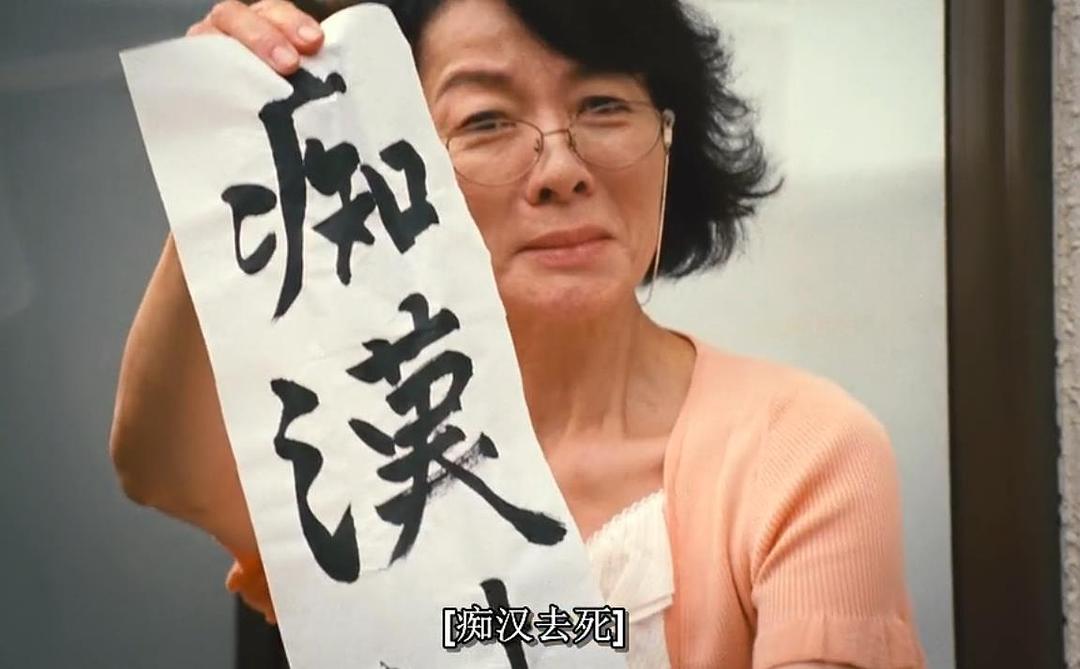 痴漢
[痴汉去死]